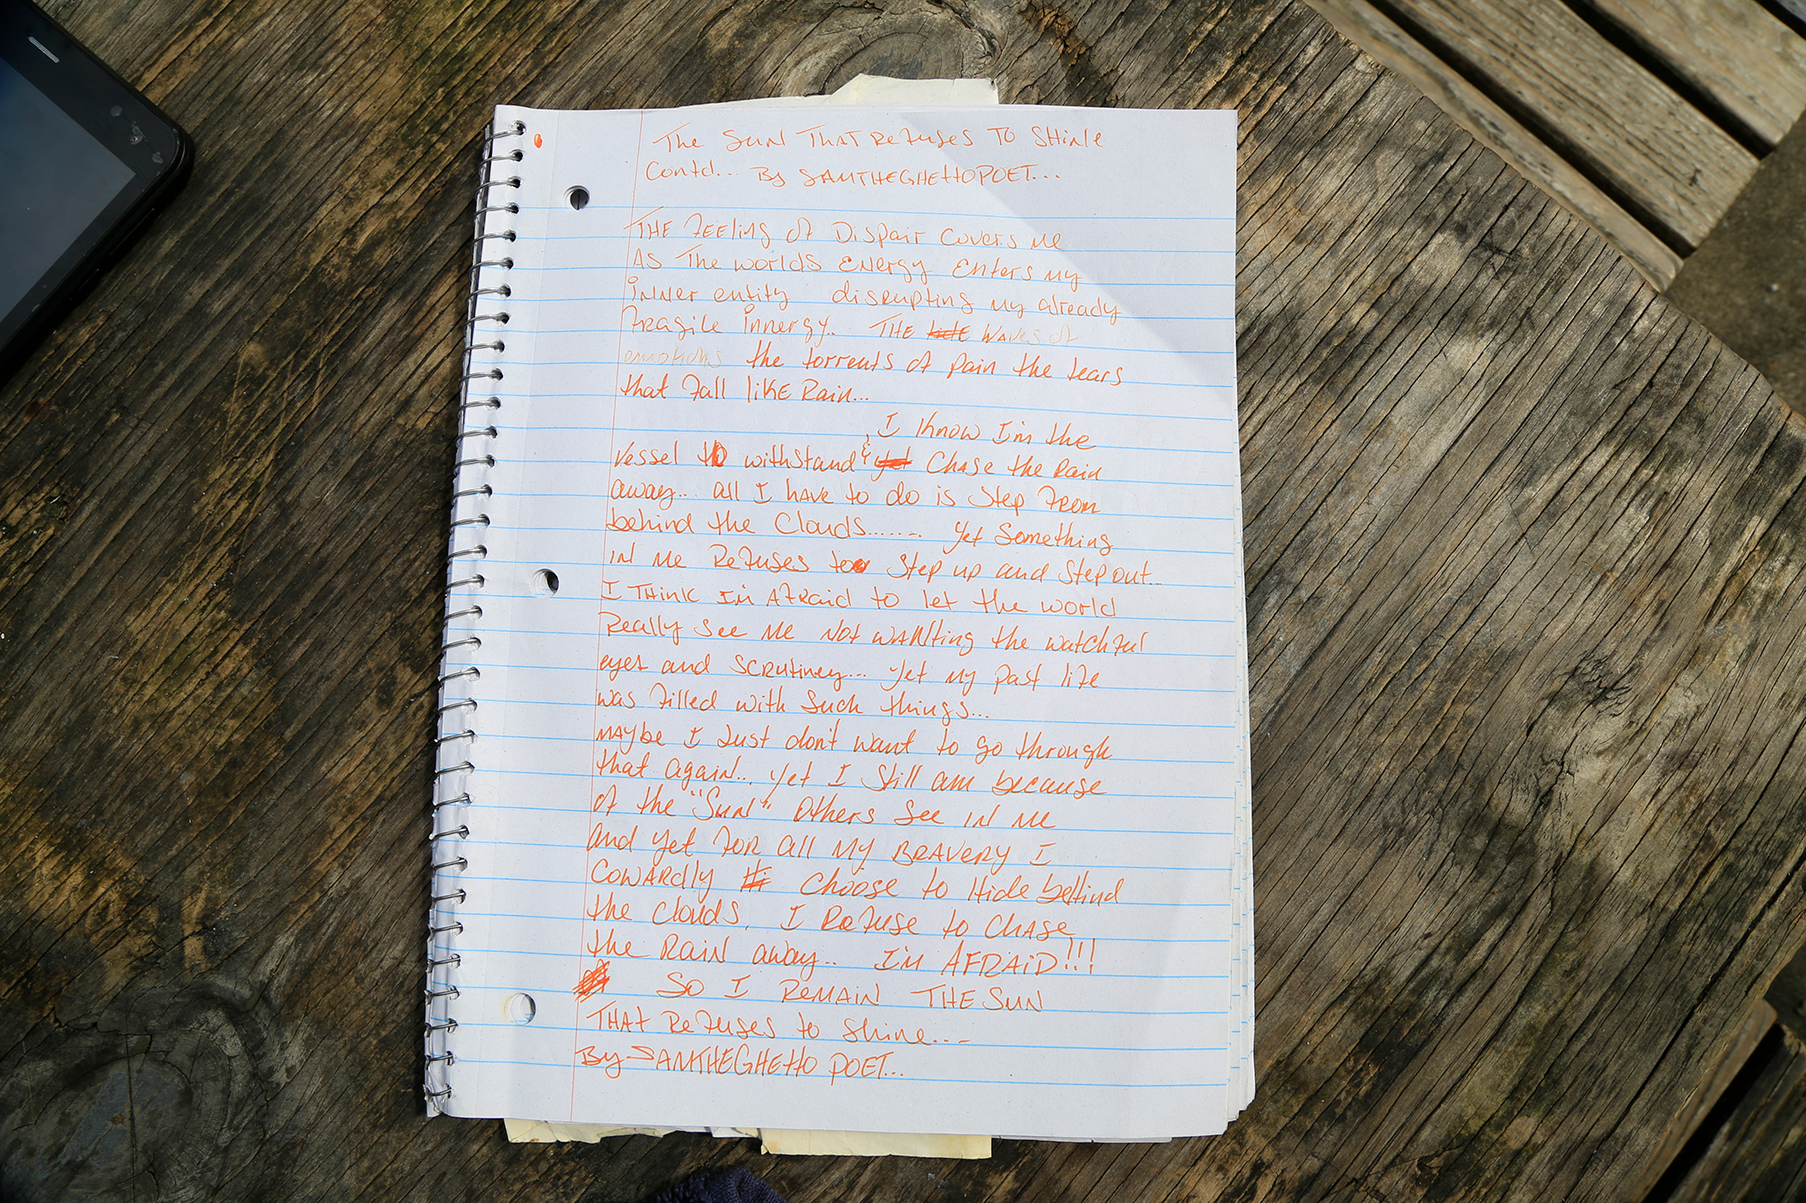 The Sun THAT Refuses TO SHINE
Contd... By SAMTHEGHettOPOET...
THE FEELING of Dispair Covers me
AS The worlds ENERGY Enters my
inner entity disrupting my already
fragile innergy.. THE waves of
emotions the torrents of pain the tears
that fall like Rain...
I know I'm the
vessel to withstand & chase the Rain
away... all I have to do is step from
behind the Clouds....... yet something
in me Refuses to step up and step out...
I THINK I'm Afraid to let the world
Really see me not wanting the watchful
eyes and scrutiney... yet my past life
was filled with such things...
maybe I Just don't want to go through
that again... yet I still am because
of the "Sun" others see in me
and yet for all my BRAVERY I
cowardly choose to Hide behind
the clouds, I Refuse to chase
the RAIN away... I'm AFRAID!!!
SO I REMAIN THE SUN
THAT Refuses to shine....
By SAMTHEGHEttO POET...